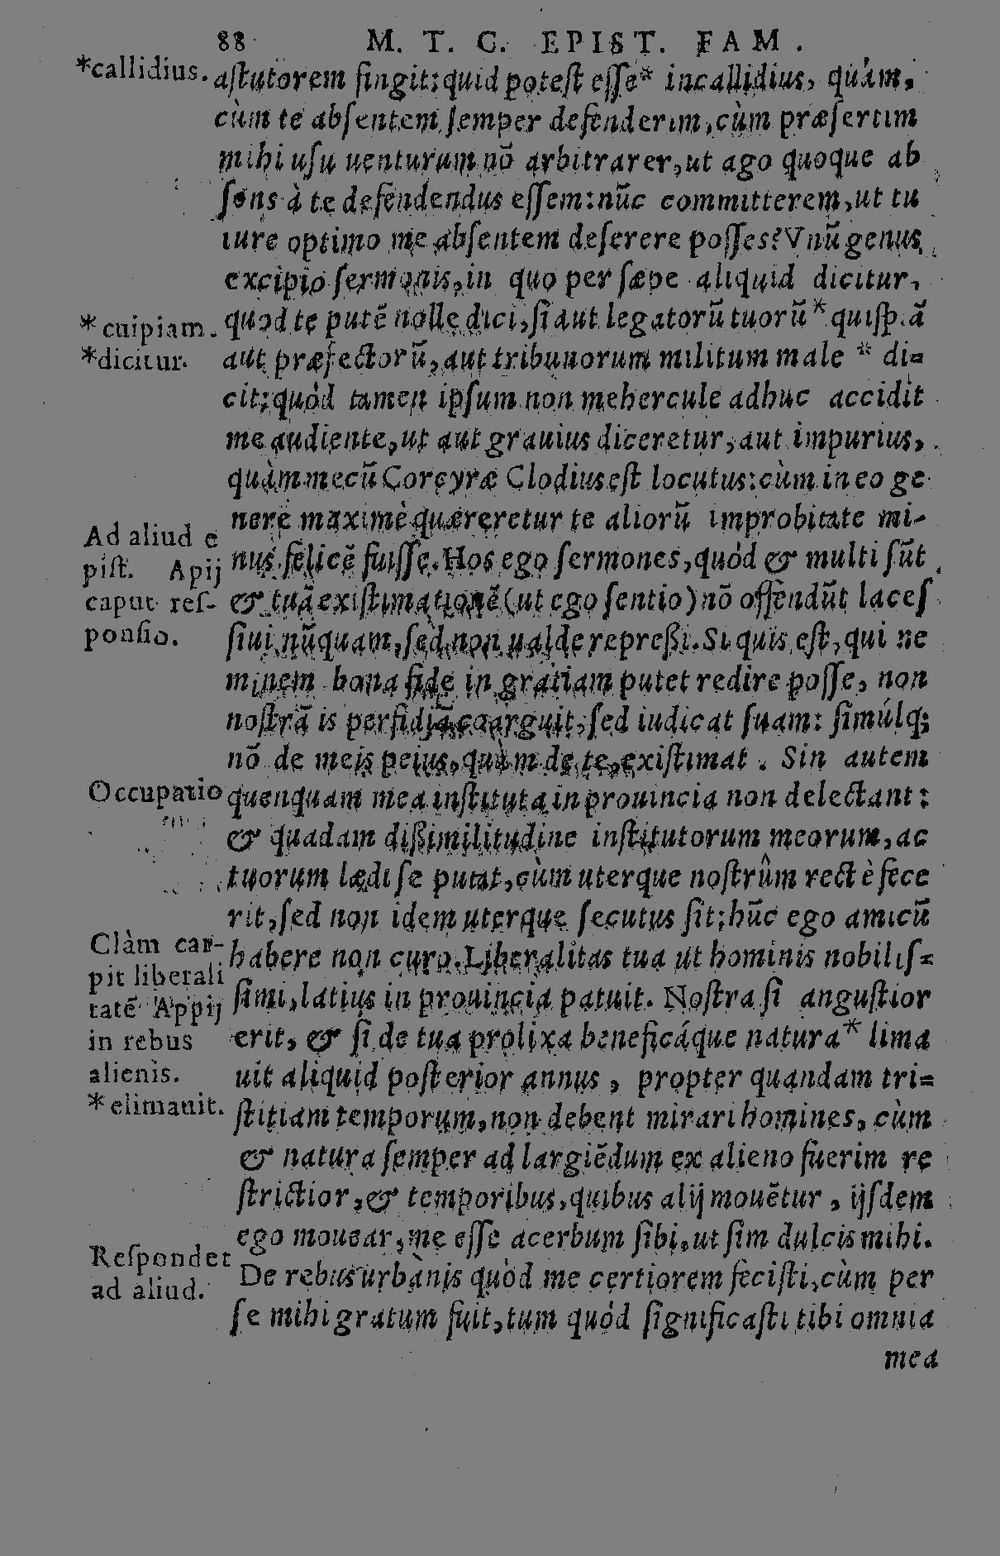 88 M. T. C. EPIST. FAM.
*callidius.
aſtutorem fingit: quid poteſt eſſe* incallidius, quàm,
cùm te abſentem ſemper defenderim, cùm præſertim
mihi uſu uenturum nō arbitrarer, ut ego quoque ab
ſens à te defendendus eſſem: nūc committerem, ut tu
iure optimo me abſentem deſerere poſſes? Vnū genus
excipio ſermonis, in quo per ſæpe aliquid dicitur,
*cuipiam.
quod te putē nolle dici, ſi aut legatorū tuorū* quiſpiā
*dicitur.
aut præfectorū, aut tribunorum militum male * di=
cit: quòd tamen ipſum non mehercule adhuc accidit
me audiente, ut aut grauius diceretur, aut impurius,
quàm mecū Corcyræ Clodius eſt locutus: cùm in eo ge
nere maximè quæreretur te aliorū improbitate mi-
Ad aliud e
piſt. Apij
caput reſ-
ponſio.
nus felicē fuiſſe. Hos ego ſermones, quòd & multi ſūt
& tuā exiſtimationē (ut ego ſentio) nō offendūt laceſ
ſiui nūquam, ſed non ualde repreßi. Si quis eſt, qui ne
minem bona fide in gratiam putet redire poſſe, non
noſtrā is perfidiā coarguit, ſed iudicat ſuam: ſimúlq;
nō de meis peius, quàm de te, exiſtimat. Sin autem
Occupatio
quenquam mea inſtituta in prouincia non delectant:
& quadam dißimilitudine inſtitutorum meorum, ac
tuorum lædi ſe putat, cùm uterque noſtrûm rectè fece
rit, ſed non idem uterque ſecutus ſit: hūc ego amicū
Clàm car-
pit liberali
tatē Appij
in rebus
alienis.
habere non curo. Liberalitas tua ut hominis nobiliſ=
ſimi, latius in prouincia patuit. Noſtra ſi anguſtior
erit, & ſi de tua prolixa beneficáque natura* lima
*elimauit.
uit aliquid poſterior annus, propter quandam tri=
ſtitiam temporum, non debent mirari homines, cùm
& natura ſemper ad largiēdum ex alieno fuerim re
ſtrictior, & temporibus, quibus alij mouētur, ijſdem
ego mouear, me eſſe acerbum ſibi, ut ſim dulcis mihi.
Reſpondet
ad aliud.
De rebus urbànis quòd me certiorem feciſti, cùm per
ſe mihi gratum fuit, tum quòd ſignificaſti tibi omnia
mea